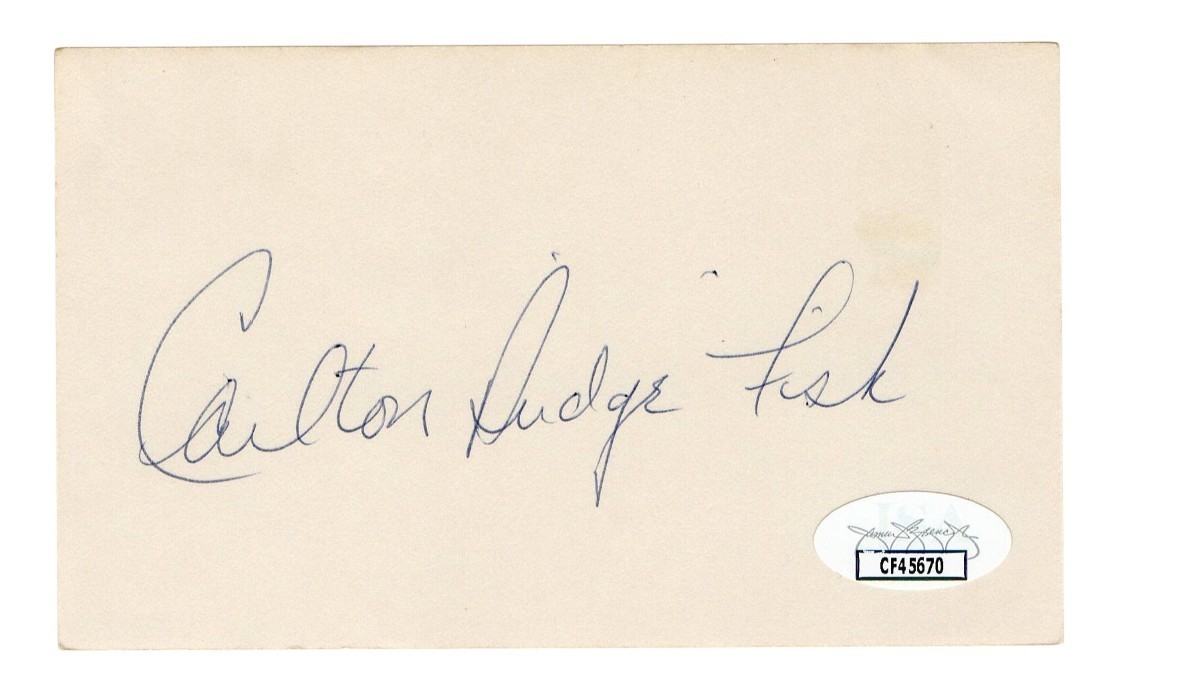 Carlton "Pudge" Fisk
JSA
CF45670